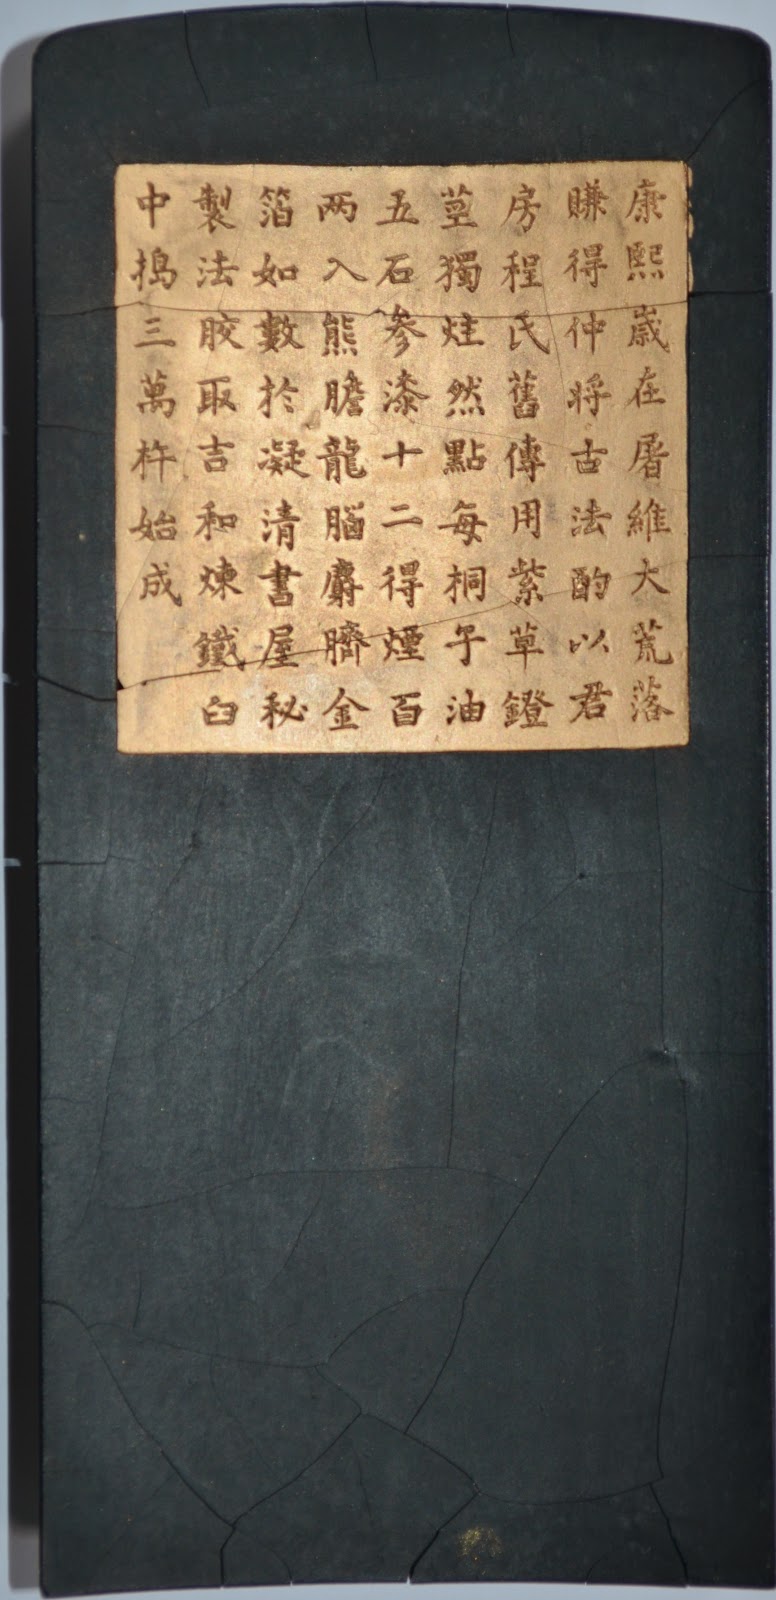 康熙歲在屠維大荒落
賺得仲將古法酌以君
房程氏舊傳用紫草鐙
莖獨炷然點每桐子油
五石參漆十二得煙百
两入熊膽龍腦麝臍金
箔如數於凝清書屋秘
製法膠取吉和煉鐵臼
中搗三萬杵始成